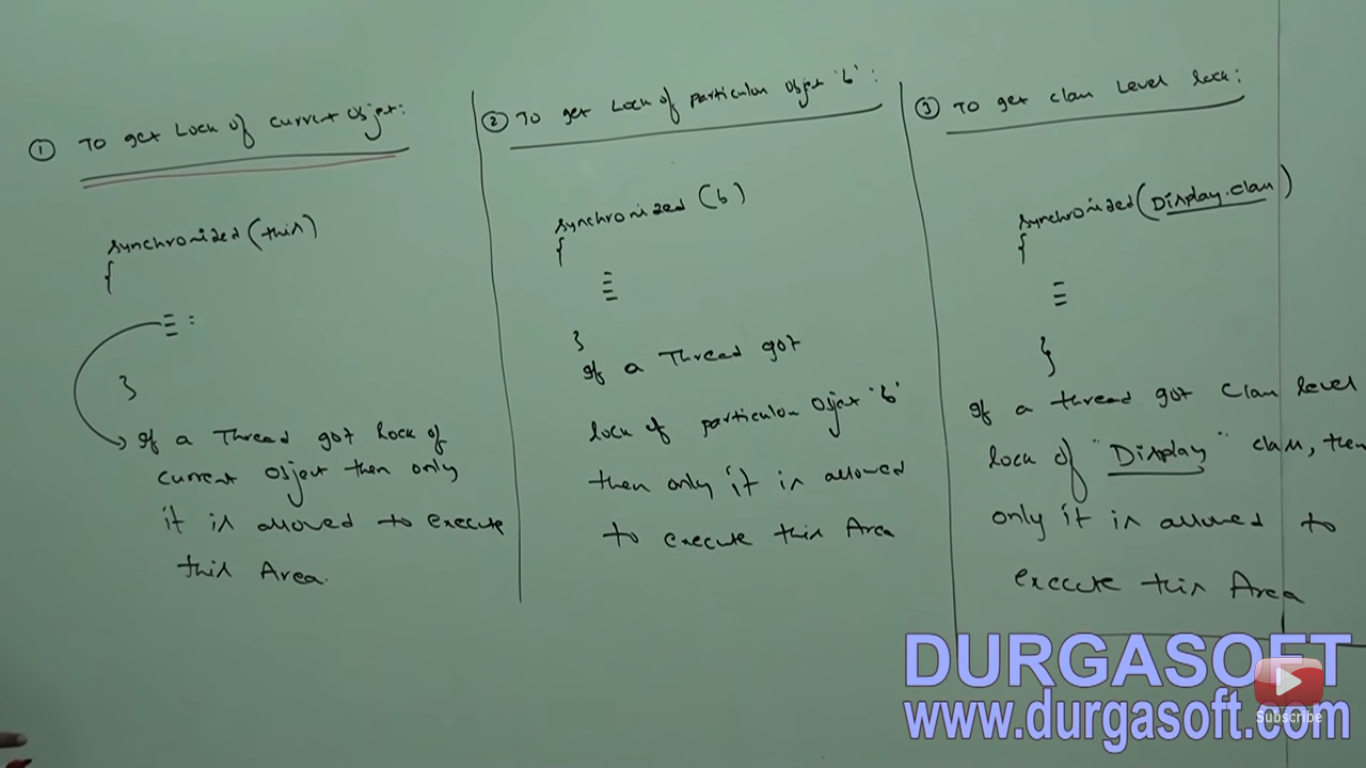 ① To get Lock of current Object:
synchronized (this)
{
}
If a Thread got Lock of
current Object then only
it is allowed to execute
this Area.
② To get Lock of particular Object 'b':
synchronized (b)
{
}
If a Thread got
lock of particular Object 'b'
then only it is allowed
to execute this Area
③ To get class Level lock:
synchronized (Display.class)
{
}
If a thread got class level
lock of "Display" class, then
only it is allowed to
execute this Area
DURGASOFT
www.durgasoft.com
Subscribe